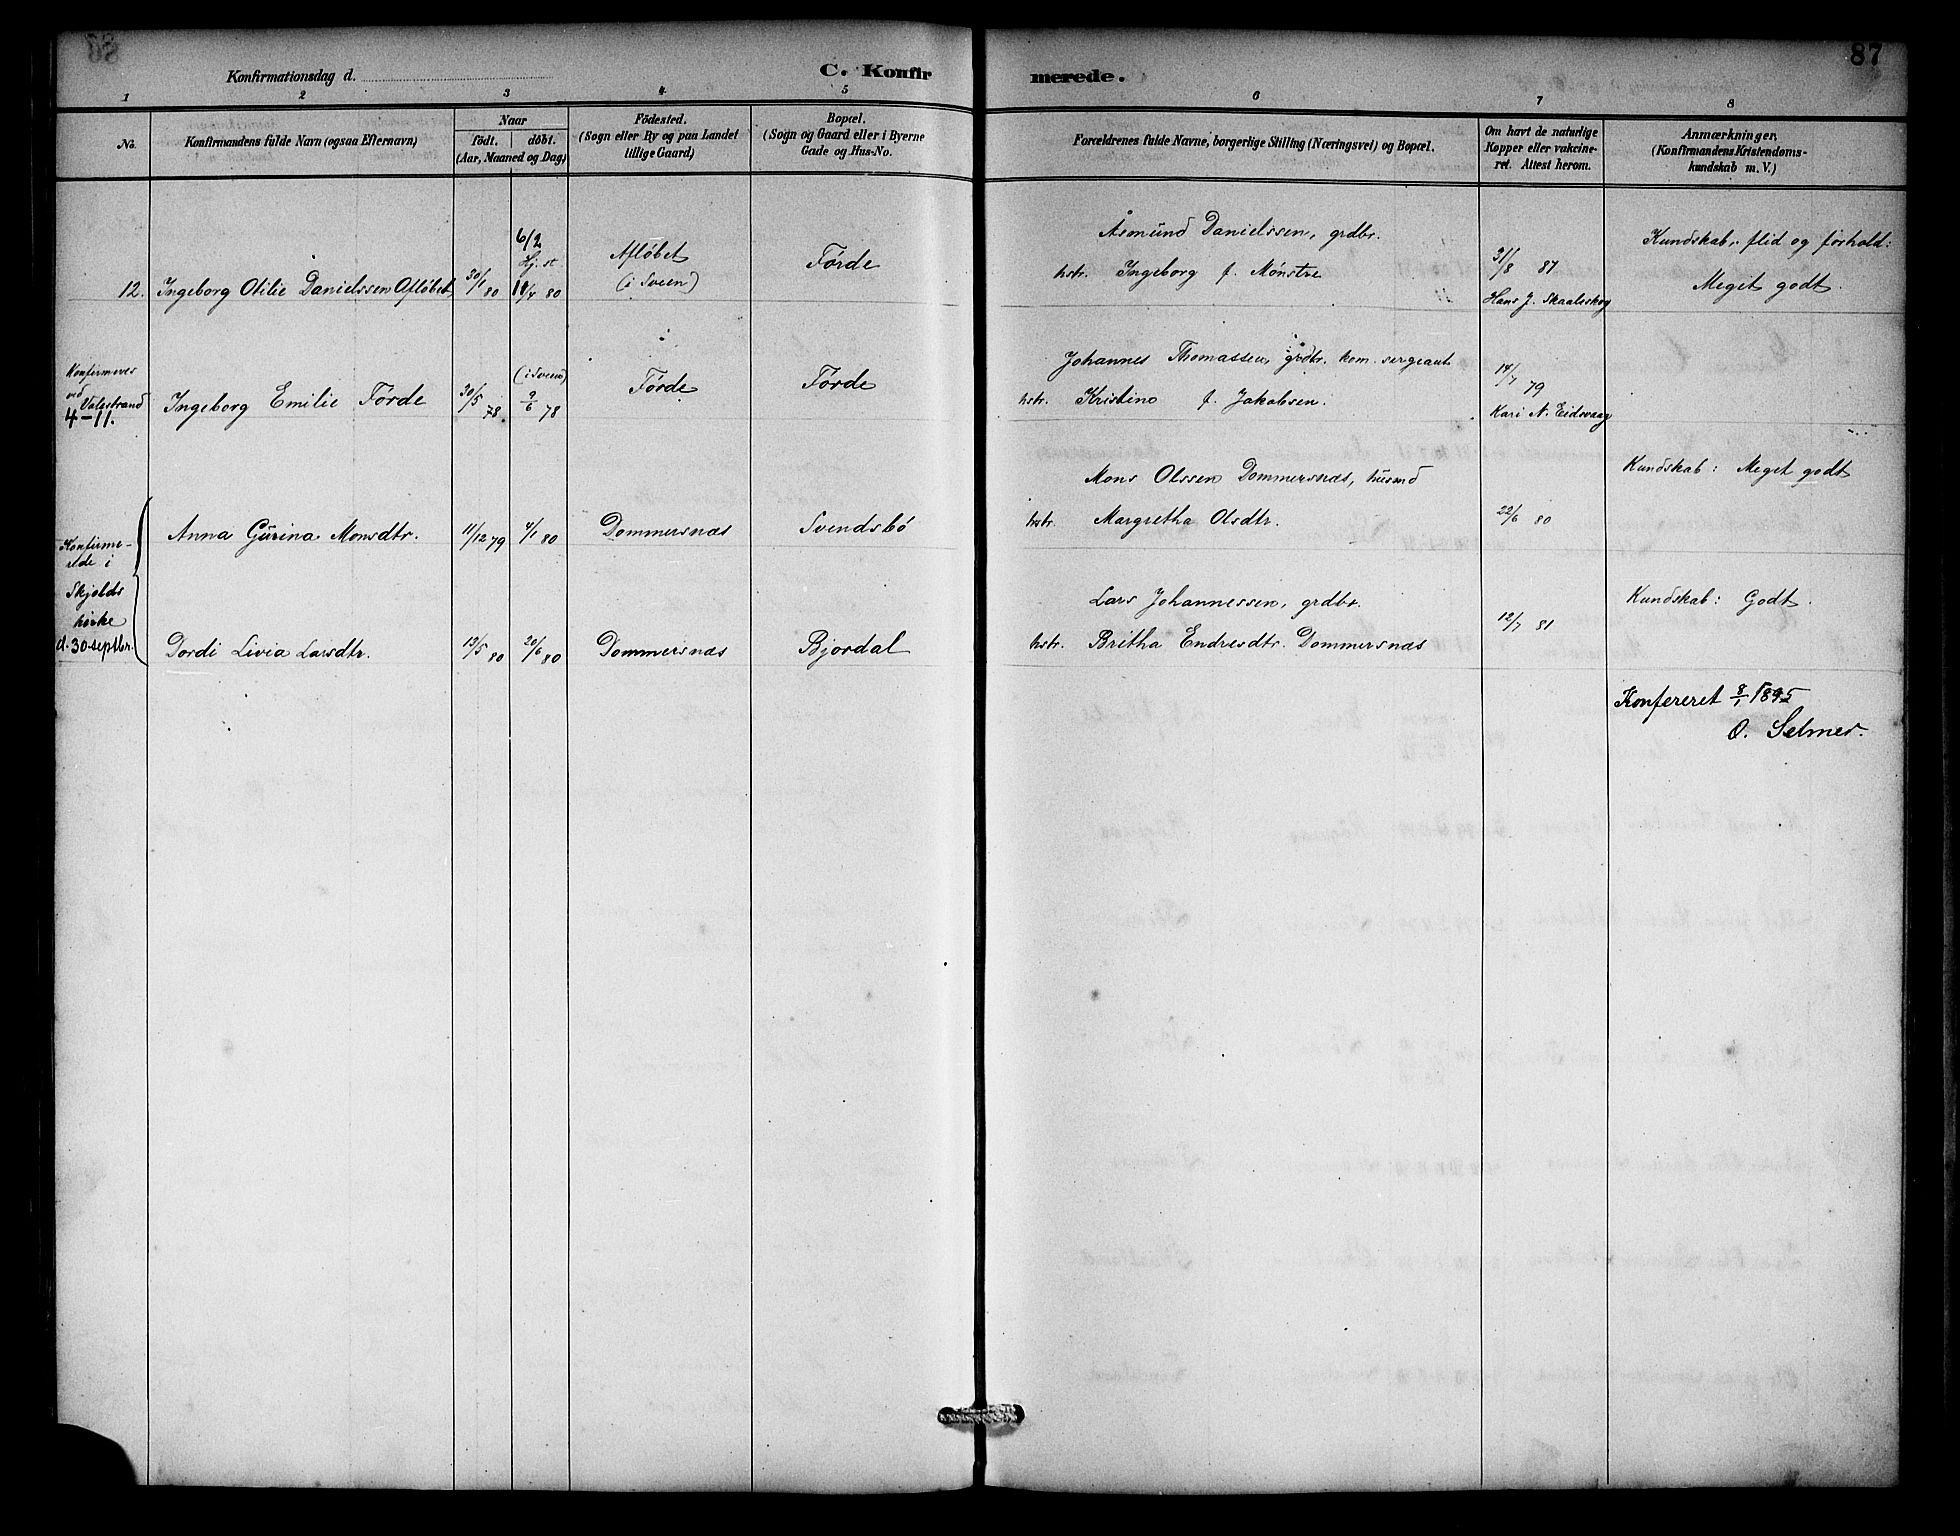 87
Konfirmationsdag d.
C. Konfir
merede.
1 2 3 4 5 6 7 8
No.
Konfirmandens fulde Navn (ogsaa Efternavn)
Naar
født. døbt.
(Aar, Maaned og Dag)
Födested.
(Sogn eller By og paa Landet
tillige Gaard)
Bopæl.
(Sogn og Gaard eller i Byerne
Gade og Hus-No.
Forældrenes fulde Navne, borgerlige Stilling (Næringsvei) og Bopæl.
Om havt de naturlige
Kopper eller vakcine-
ret. Attest herom.
Anmærkninger.
(Konfirmandens Kristendoms-
kundskab m. V.)
12. Ingeborg Otilie Danielssen Afløbet
30/1 80
6/2
Hj. st
11/4 80
Afløbet
(i Sveen)
Førde
Åsmund Danielssen, grdbr.
hstr. Ingeborg f. Mønstre
31/8 87
Hans J. Skaaleskog
Kundskab, flid og forhold:
Meget godt.
Konfirmeres
ved
Valestrand
4-11.
Ingeborg Emilie Førde
30/5 78
(i Sveen)
9/6 78
Førde
Førde
Johannes Thomassen, grdbr. kom. sergeant
hstr. Kristine f. Jakobsen.
14/7 79
Kari N. Eidsvaag
Konfirme-
rede i
Skjolds
kirke
d. 30 septbr.
Anna Gurina Monsdtr.
11/12 79
4/1 80
Dommersnæs
Svendsbø
Mons Olssen Dommersnæs, husmd
hstr. Margretha Olsdtr.
22/6 80
Kundskab: Meget godt
Dordi Livia Larsdtr.
13/5 80
20/6 80
Dommersnæs
Bjordal
Lars Johannessen, grdbr.
hstr. Britha Endresdtr. Dommersnæs
12/7 81
Kundskab: Godt.
Konfereret 8/1 1895
O. Selmer.